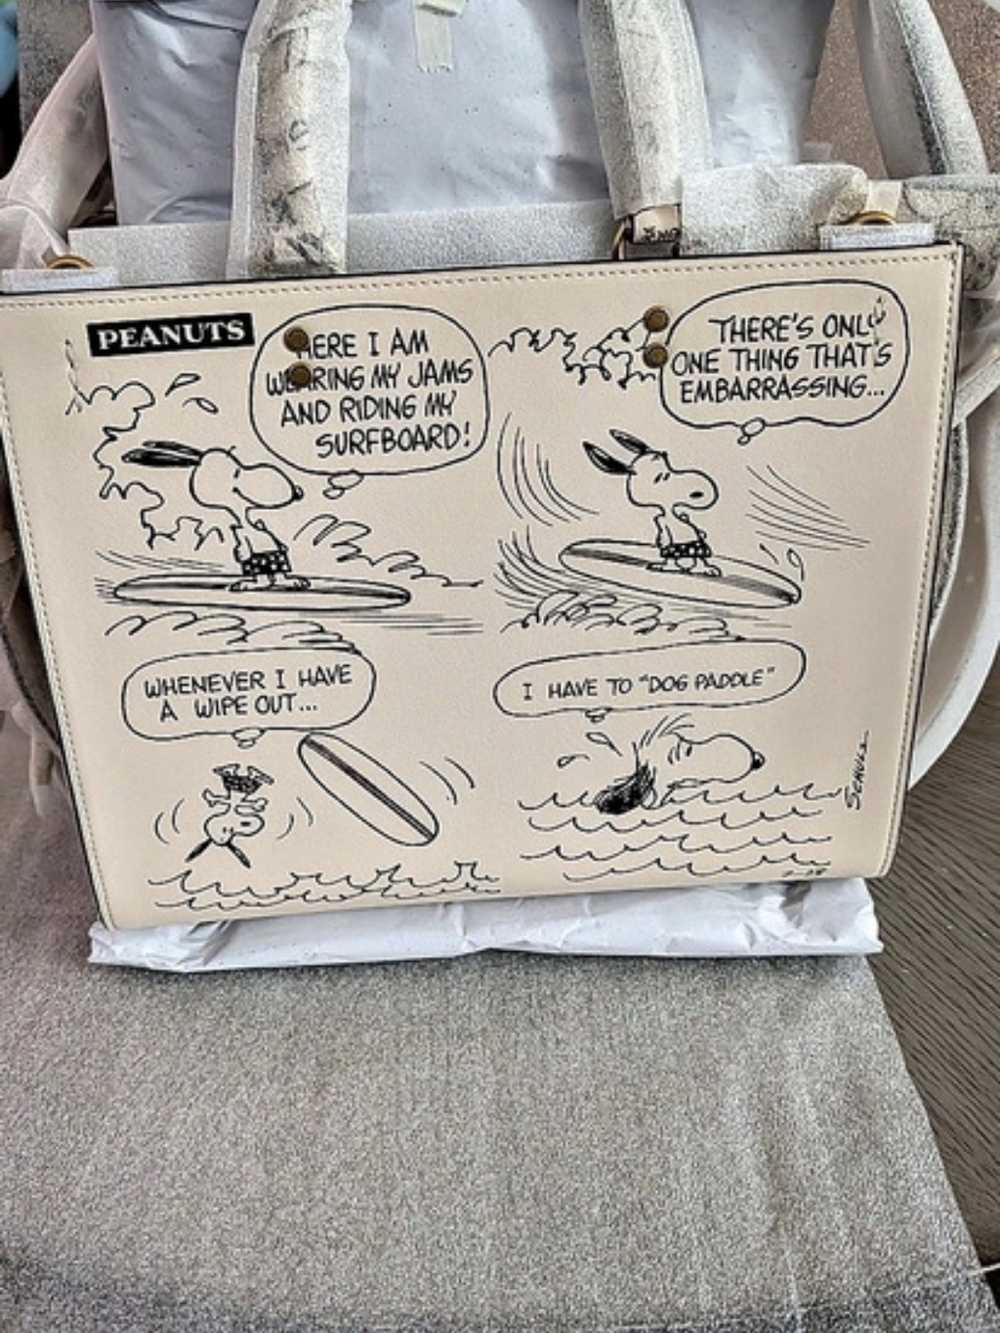 PEANUTS
HERE I AM
WEARING MY JAMS
AND RIDING MY
SURFBOARD!
THERE'S ONLY
ONE THING THAT'S
EMBARRASSING...
WHENEVER I HAVE
A WIPE OUT...
I HAVE TO "DOG PADDLE"
SCHULZ